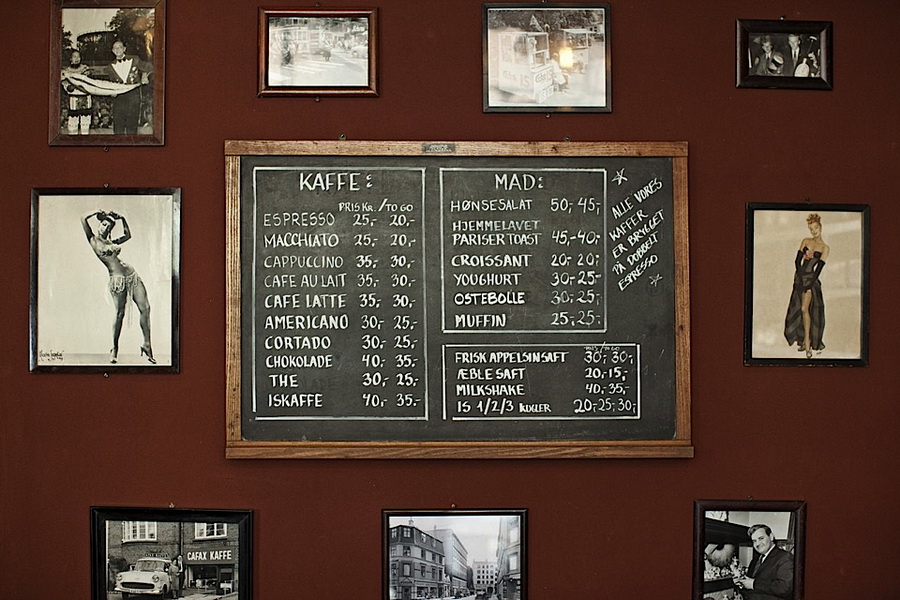 KAFFE:
PRIS KR. / TO GO
ESPRESSO 25,- 20,-
MACCHIATO 25,- 20,-
CAPPUCCINO 35,- 30,-
CAFE AU LAIT 35,- 30,-
CAFE LATTE 35,- 30,-
AMERICANO 30,- 25,-
CORTADO 30,- 25,-
CHOKOLADE 40,- 35,-
THE 30,- 25,-
ISKAFFE 40,- 35,-
MAD:
HØNSESALAT 50,- 45,-
HJEMMELAVET
PARISERTOAST 45,- 40,-
CROISSANT 20,- 20,-
YOUGHURT 30,- 25,-
OSTEBOLLE 30,- 25,-
MUFFIN 25,- 25,-
ALLE VORES
KAFFER
ER BRYGGET
PÅ DOBBELT
ESPRESSO
PRIS / TO GO
FRISK APPELSINSAFT 30,- 30,-
ÆBLESAFT 20,- 15,-
MILKSHAKE 40,- 35,-
IS 1/2/3 KUGLER 20,- 25,- 30,-
CAFAX KAFFE